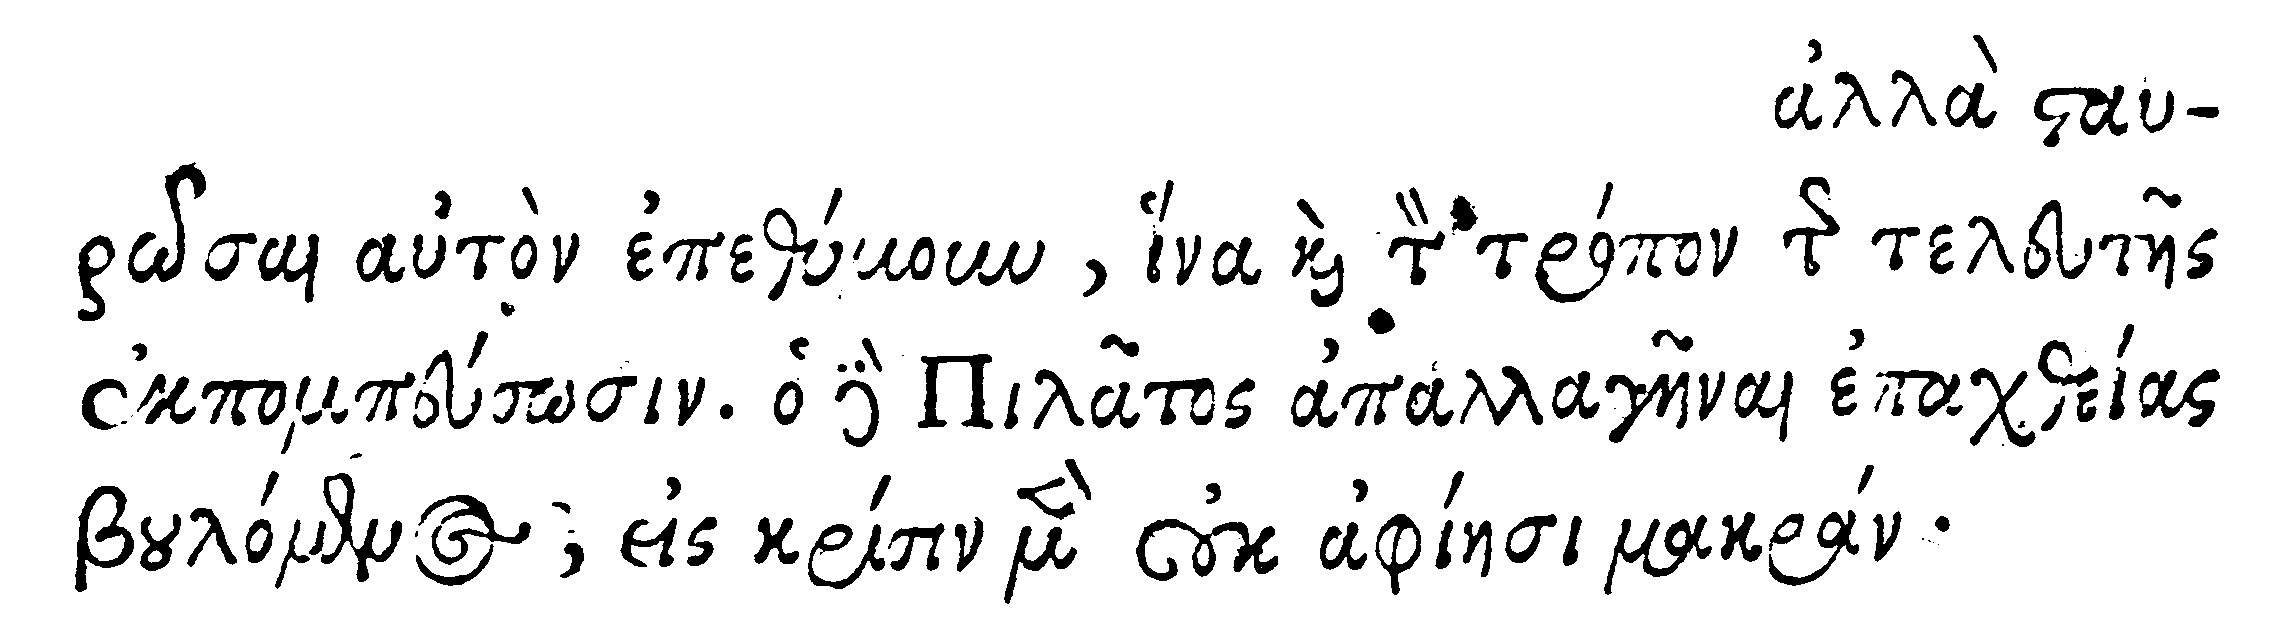 ἀλλὰ σταυ-
ρῶσαι αὐτὸν ἐπεθύμουν, ἵνα καὶ τὸν τρόπον τῆς τελευτῆς
ἐκπομπεύσωσιν. ὁ δὲ Πιλᾶτος ἀπαλλαγῆναι ἐπαχθείας
βουλόμενος, εἰς κρίσιν μὲν οὐκ ἀφίησι μακράν.